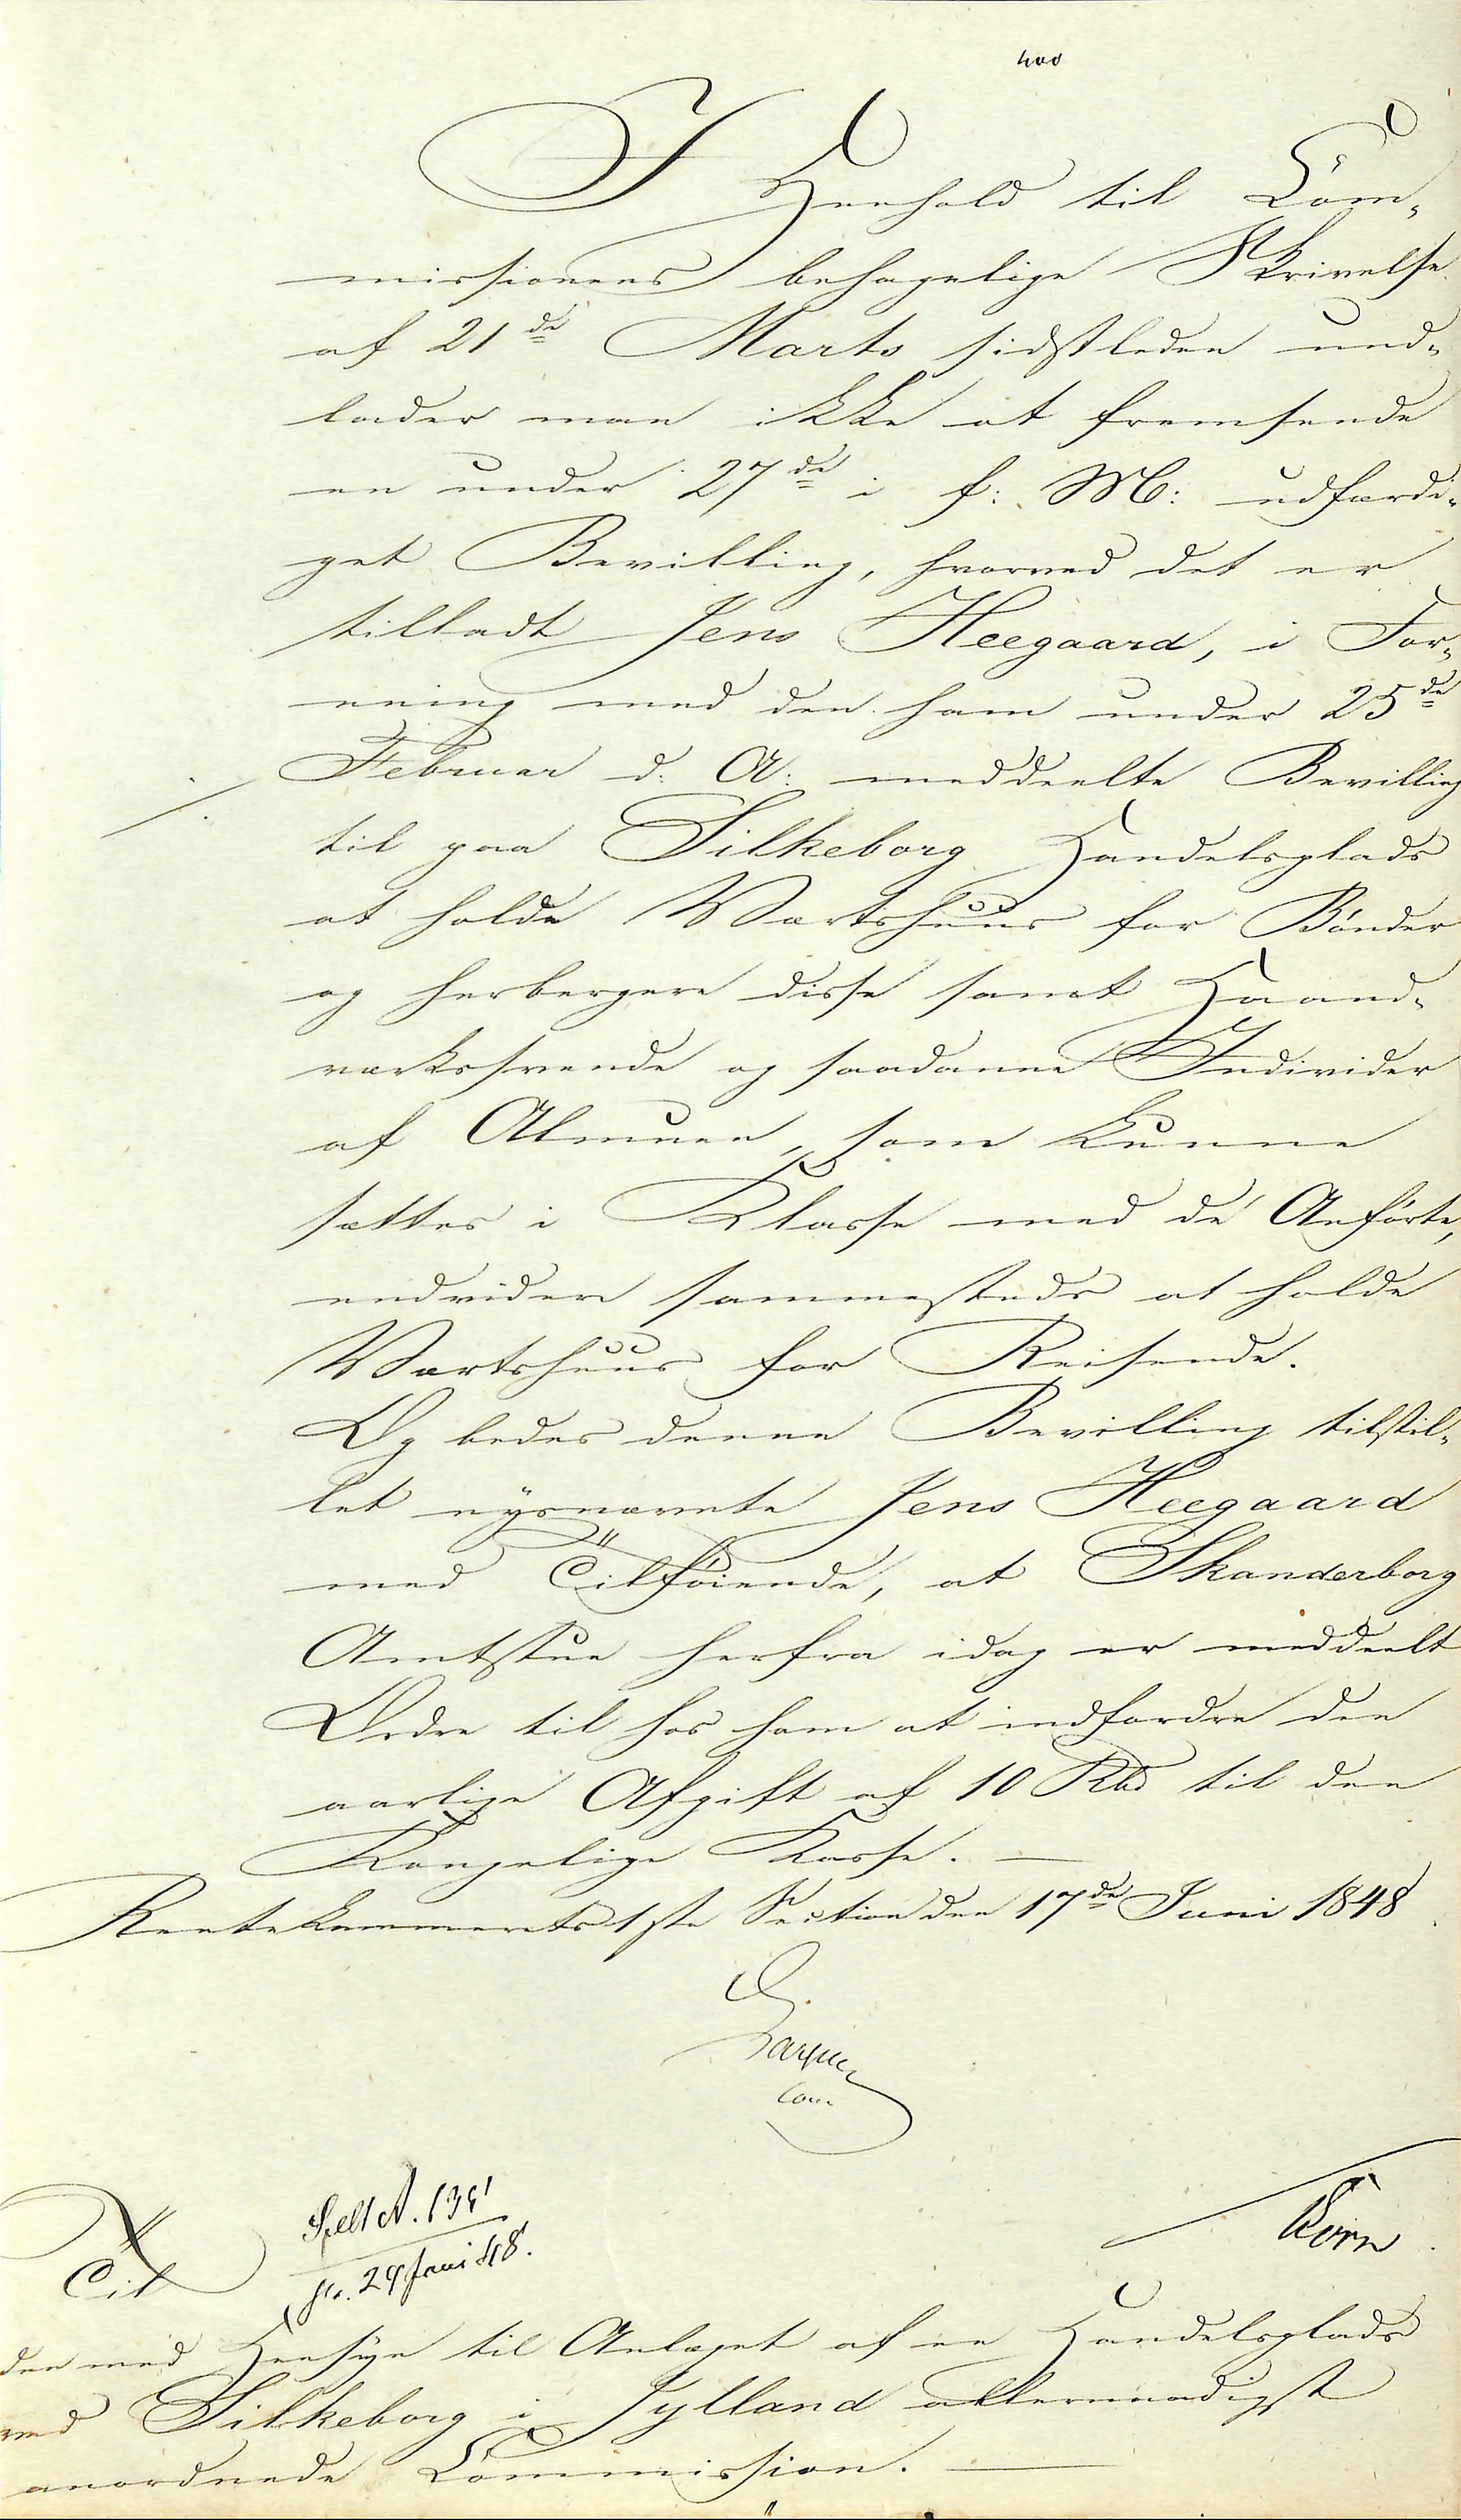 400
I Henhold til Com-
missionens behagelige Skrivelse
af 21de Marts sidstleden und-
lader man ikke at fremsende
en under 27de i f: M: udfærdi-
get Bevilling, hvorved det er
tilladt Jens Heegaard, i For-
ening med den ham under 25de
Februar d: A: meddeelte Bevilling
til paa Silkeborg Handelsplads
at holde Værtshuus for Bönder
og herbergere disse samt Haand-
værkssvende og saadanne Individer
af Almuen, som kunne
sættes i Klasse med de Anförte,
endvidere sammesteds at holde
Værtshuus for Reisende.
Og bedes denne Bevilling tilstil-
let nysnævnte Jens Heegaard
med Tilföiende, at Skanderborg
Amtstue herfra idag er meddeelt
Ordre til hos ham at indfordre den
aarlige Afgift af 10 Rbd til den
Kongelige Kasse. —
Rentekammerets 1ste Section den 17de Juni 1848
Korn
Til
29 Juni 48.
den med Hensyn til Anlæget af en Handelsplads
ved Silkeborg i Jylland allernaadigst
anordnede Commission. —